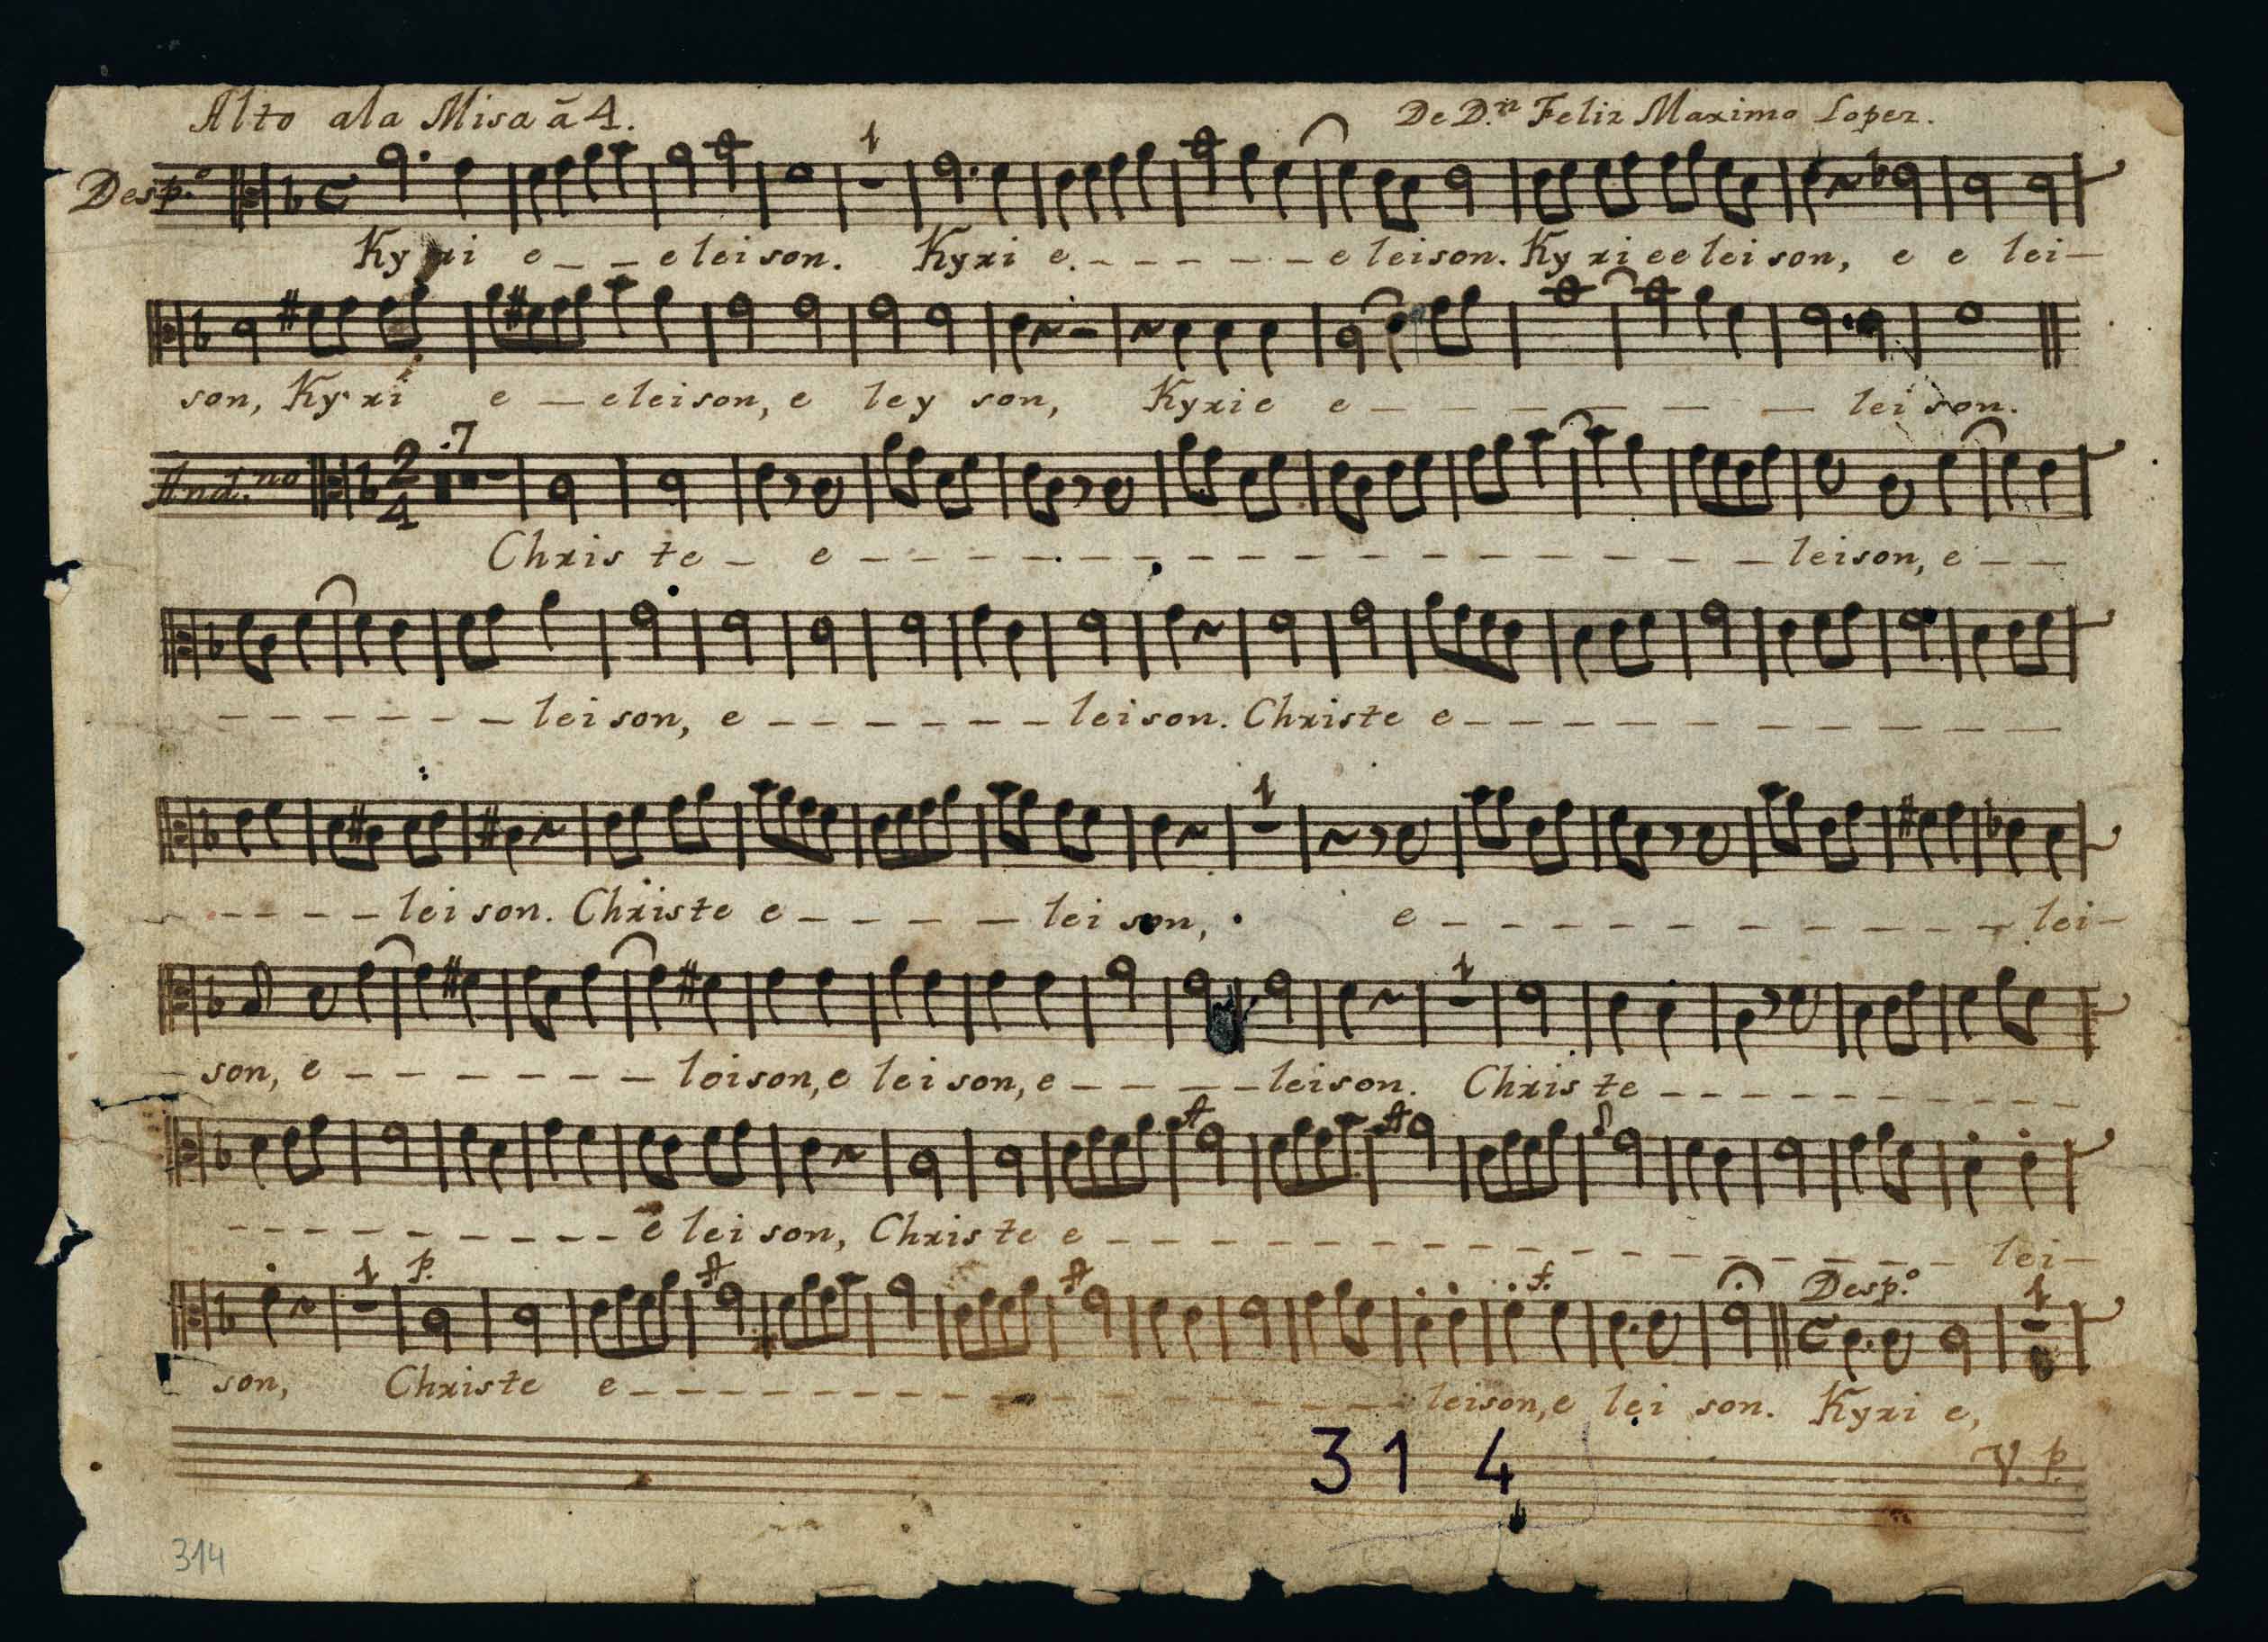 Alto ala Misa ã 4. De D.n Feliz Maximo Lopez.
Desp.o
1
Kyri e _ _ e leison. Kyri e _ _ _ _ _ _ e leison. Kyrie e leison, e e lei—
son, Kyri e — e leison, e ley son, Kyrie e _ _ _ _ _ _ _ leison.
And.no 2/4 7
Chris te _ e _ _ _ _ _ _ _ _ _ _ _ _ _ _ _ _ leison, e _ _
_ _ _ _ _ _ leison, e _ _ _ _ _ _ leison. Christe e _ _ _ _ _ _ _ _ _ _ _
1
_ _ _ _ leison. Christe e _ _ _ _ leison, e _ _ _ _ _ _ _ _ _ _ _ lei—
1
— son, e _ _ _ _ _ _ loison, e leison, e _ _ _ _ leison. Christe _ _ _ _ _ _ _ _ _
_ _ _ _ _ _ _ _ _ e leison, Christe e _ _ _ _ _ _ _ _ _ _ _ _ _ _ _ _ lei—
1 p. f. Desp.o 1
son, Christe e _ _ _ _ _ _ _ _ _ _ _ _ _ _ _ leison, e lei son. Kyri e,
31 4
V. p.
314